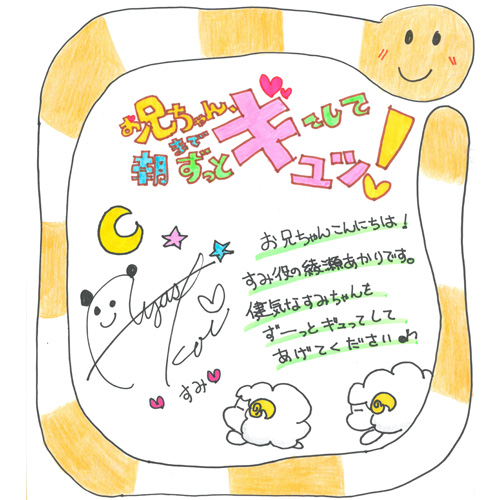 お兄ちゃん、
朝までずっとギュッてして！
お兄ちゃんこんにちは!
すみ役の綾瀬あかりです。
健気なすみちゃんを
ずーっとギュってして
あげてください♪
すみ